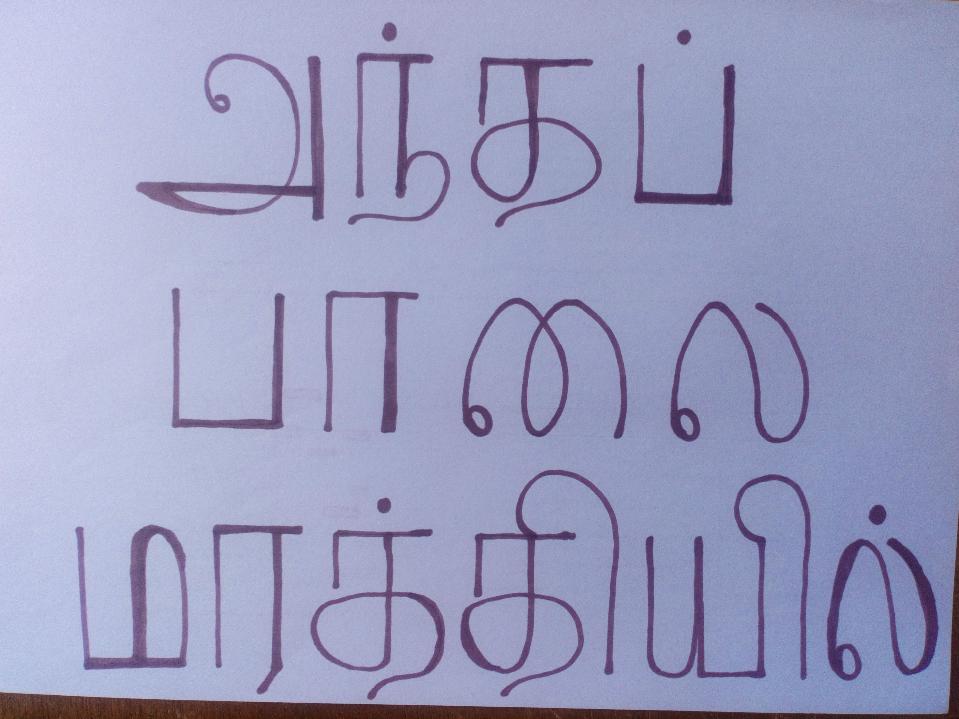 அந்தப்
பாலை
மரத்தியில்